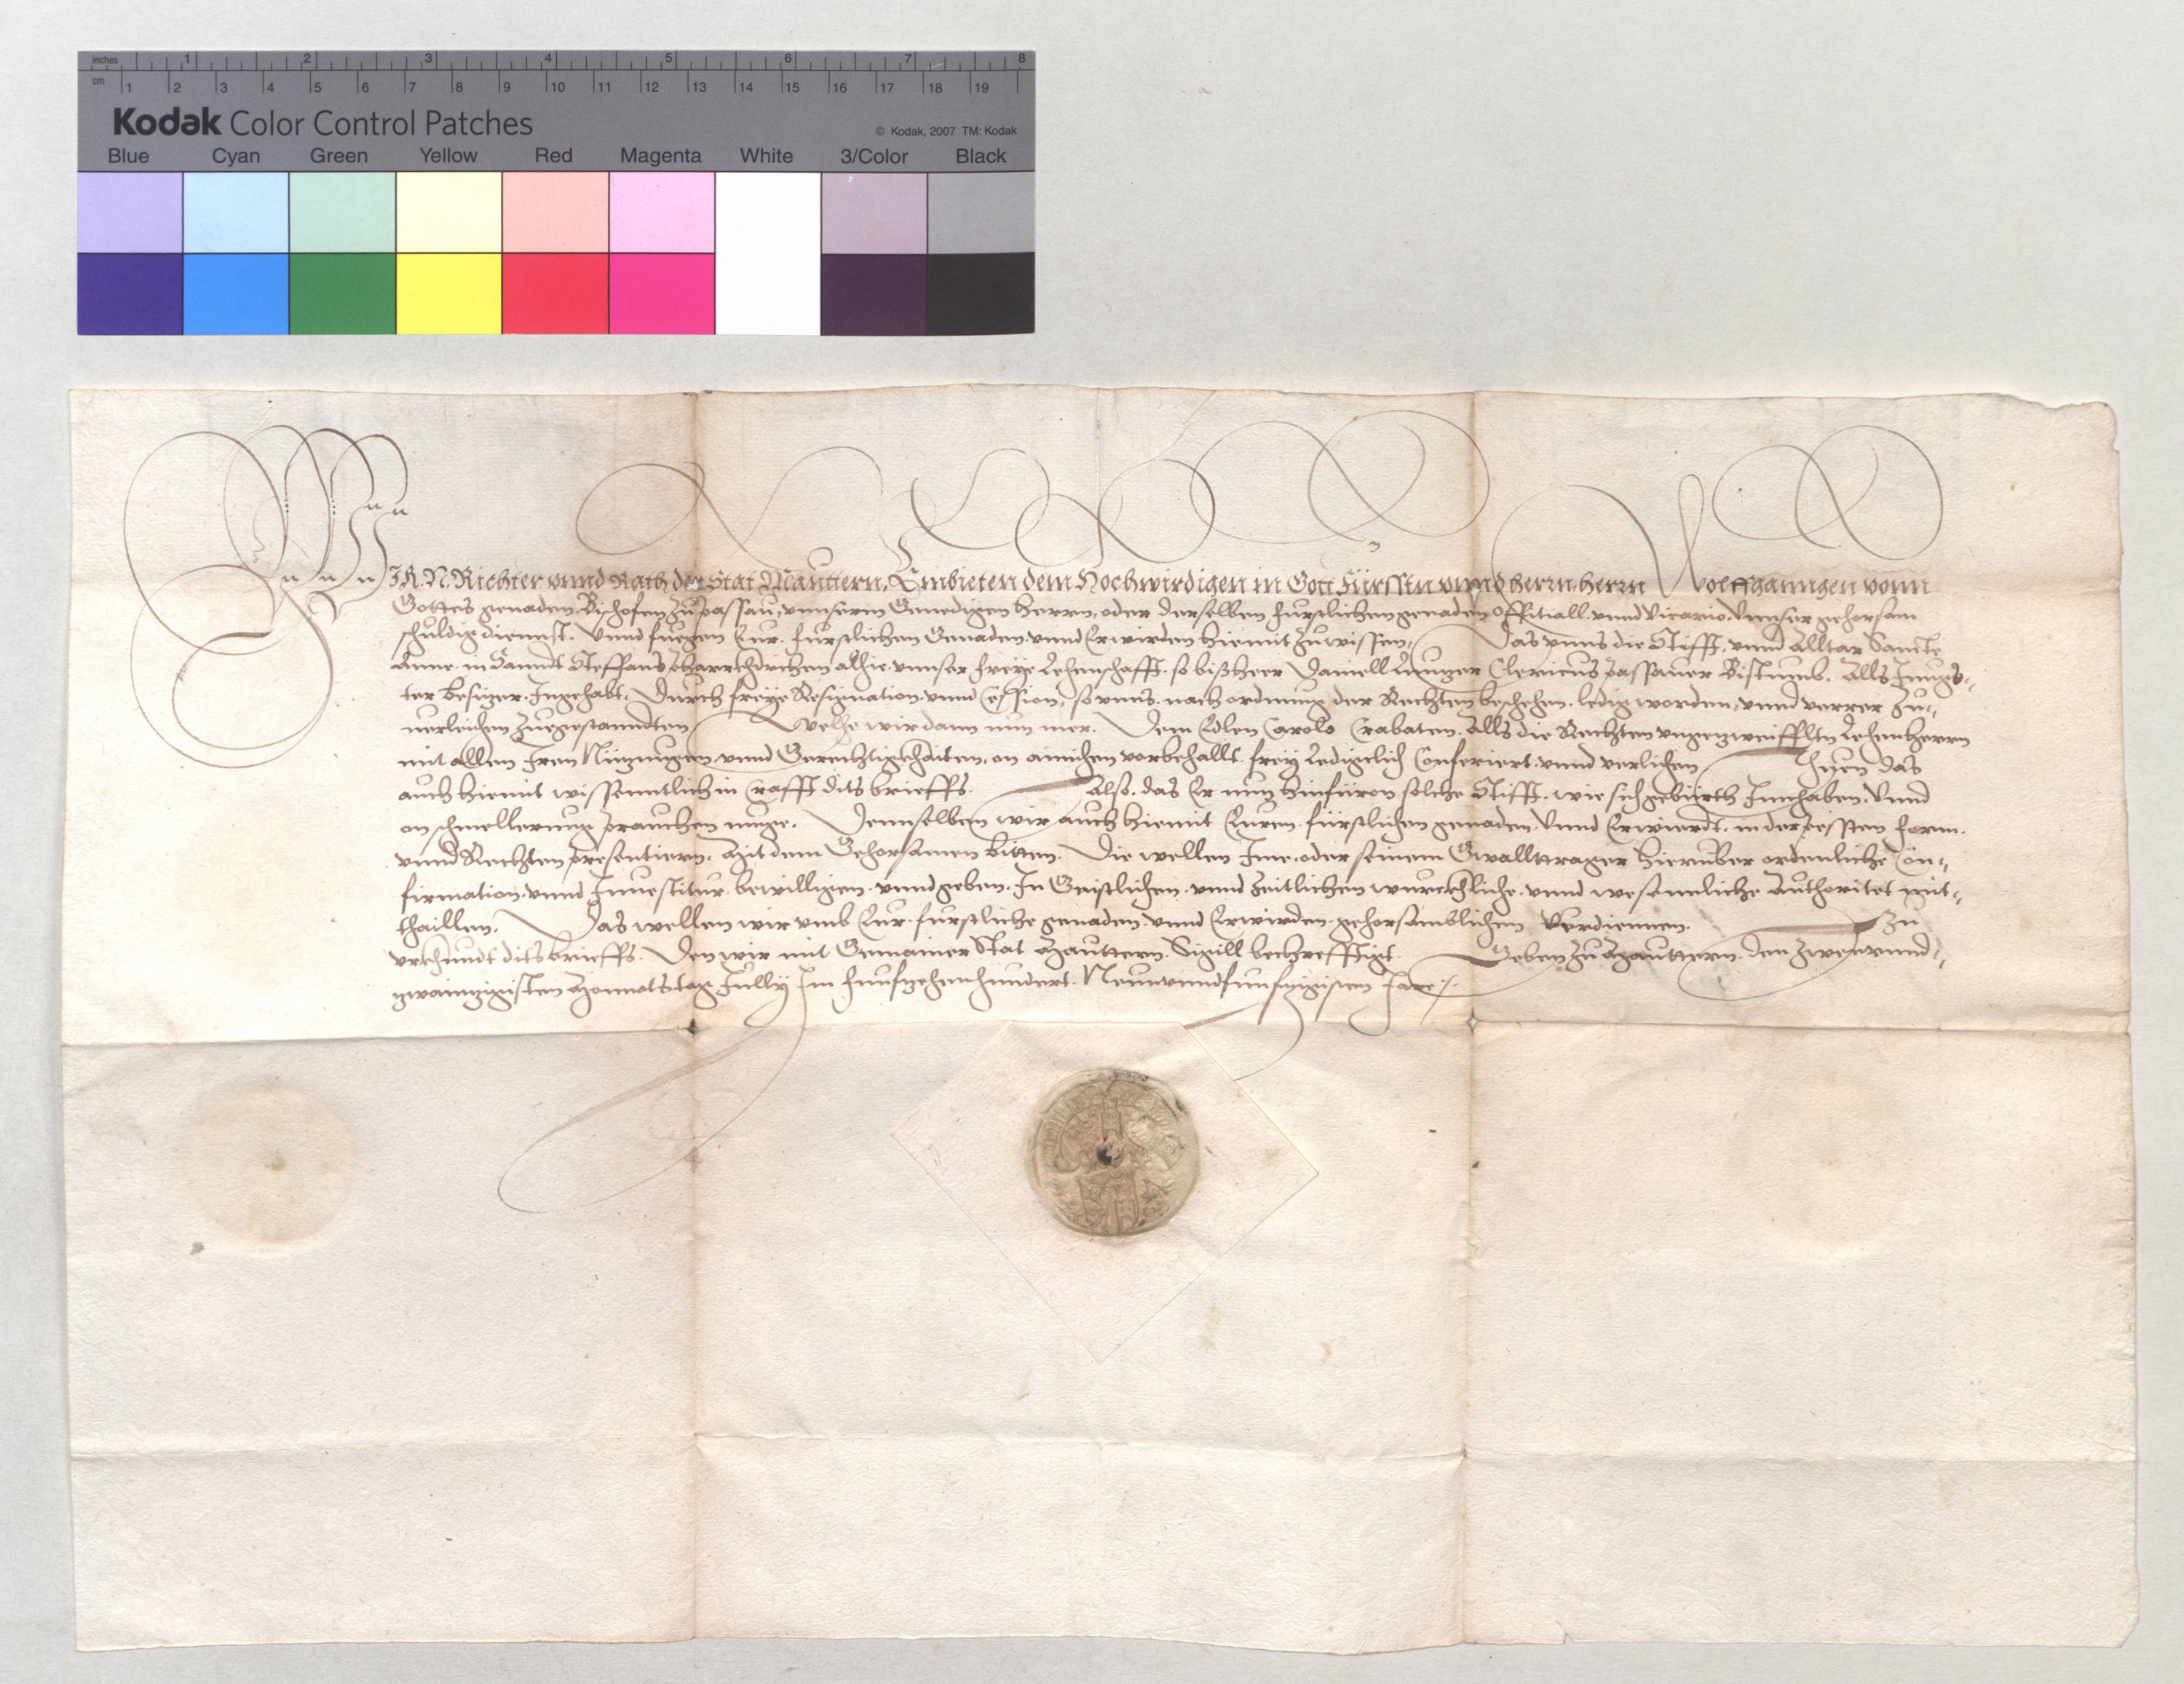 inches 1 2 3 4 5 6 7 8
cm 1 2 3 4 5 6 7 8 9 10 11 12 13 14 15 16 17 18 19
Kodak Color Control Patches © Kodak, 2007 TM: Kodak
Blue Cyan Green Yellow Red Magenta White 3/Color Black
WIR. N. Richter vnnd Rath der Stat Mauttern, Embieten dem Hochwirdigen in Gott Fürsstn vnnd herrn, herrn Wolffganngen vonn
Gottes genaden, Bischofen zu Passau, vnnserm Genedigen herrn, oder derselben furstlichen genaden Offitiall vnnd Vicario, Vnnser gehorsam
schuldig diennst. Vnnd fuegen Eur. furstlichen Genaden, vnnd Erwirden hiemit zuwissen, Das vnns die Stifft, vnnd Alltar Sancte
Anne in Sanndt Steffans Pharrkhirchen alhie, vnnser freye Lehenschafft, so bißheer Daniell Clericus Passauer Bistumb. Alls Jungs-
ter besizer, Ingehabt, durch freye Resignation vnnd Cession, so vnns nach ordnung der Rechten beschehen, ledig worden, vnnd verrer zu-
uerleichen zuegestanndten Welhe wir dann nun mer. Dem Edlen Carolo Crabaten. Alls die Rechten vngezweiffltn Lehenherrn
mit allen Iren Nuzungen vnnd Gerechtigkhaiten, on ainichen vorbehallt frey Ledigclich Conferiert vnnd verlichen Thuen das
auch hiemit wissenntlich in Crafft dits brieffs. Also, das Er nun hinfüron solche Stifft, wie sich gebürth Innhaben, Vnnd
on schmellerung prauchen muge. Dennselben wir auch hiemit Euren fürstlichen genaden Vnnd Erwierdt, in der pessten Form
vnnd Rechten presentiern, Mit dem Gehorsamen bitten. Die wellen Ime, oder seinem Gwallttrager hieruber ordenliche Con-
firmation vnnd Inuestitur bewilligen vnnd geben, In Geistlichen vnnd Zeitlichen wurckhliche, vnnd wesennliche Authoritet mit-
thaillen. Das wellen wir vmb Eur. furstliche genaden vnnd Erwirden gehorsamblichen Verdiennen. Zu
vrkhundt dits brieffs. Den wir mit Gemainer Stat Mauttern Sigill bechrefftigt. Geben zu Mauttern den zwenvnnd-
zwainzigisten Monnatstag Jully Im funfzehenhundert Neunvnndfunfzigisten Jare